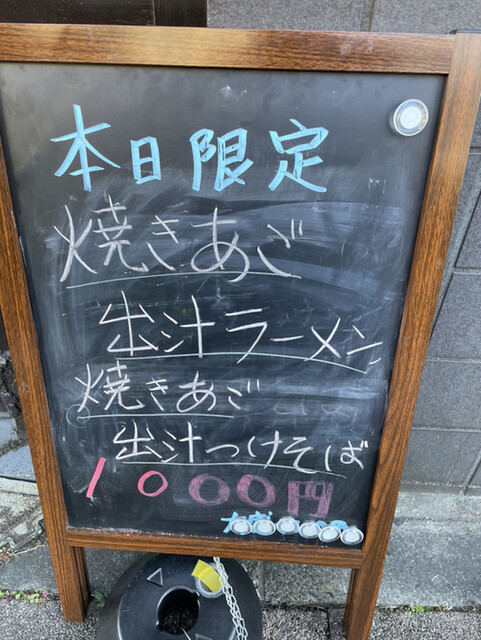 本日限定
焼きあご
出汁ラーメン
焼きあご
出汁つけそば
1000円